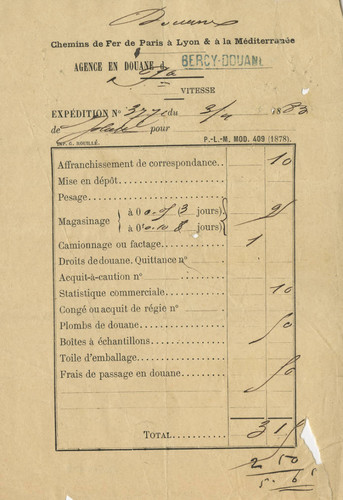 Douane
Chemins de Fer de Paris à Lyon & à la Méditerranée
AGENCE EN DOUANE d BERCY-DOUANE
VITESSE
EXPÉDITION N° 377 du 3/4 1883
de pour
P.-L.-M. MOD. 409 (1878).
IMP. G. ROUILLÉ.
Affranchissement de correspondance.. 10
Mise en dépôt
Pesage
Magasinage à 0 0.05 (3 jours)
à 0 0.10 8 jours)
Camionnage ou factage 1
Droits de douane. Quittance n°
Acquit-à-caution n°
Statistique commerciale 10
Congé ou acquit de régie n°
Plombs de douane 50
Boîtes à échantillons
Toile d'emballage
Frais de passage en douane 50
TOTAL 3 15
2 50
5. 65